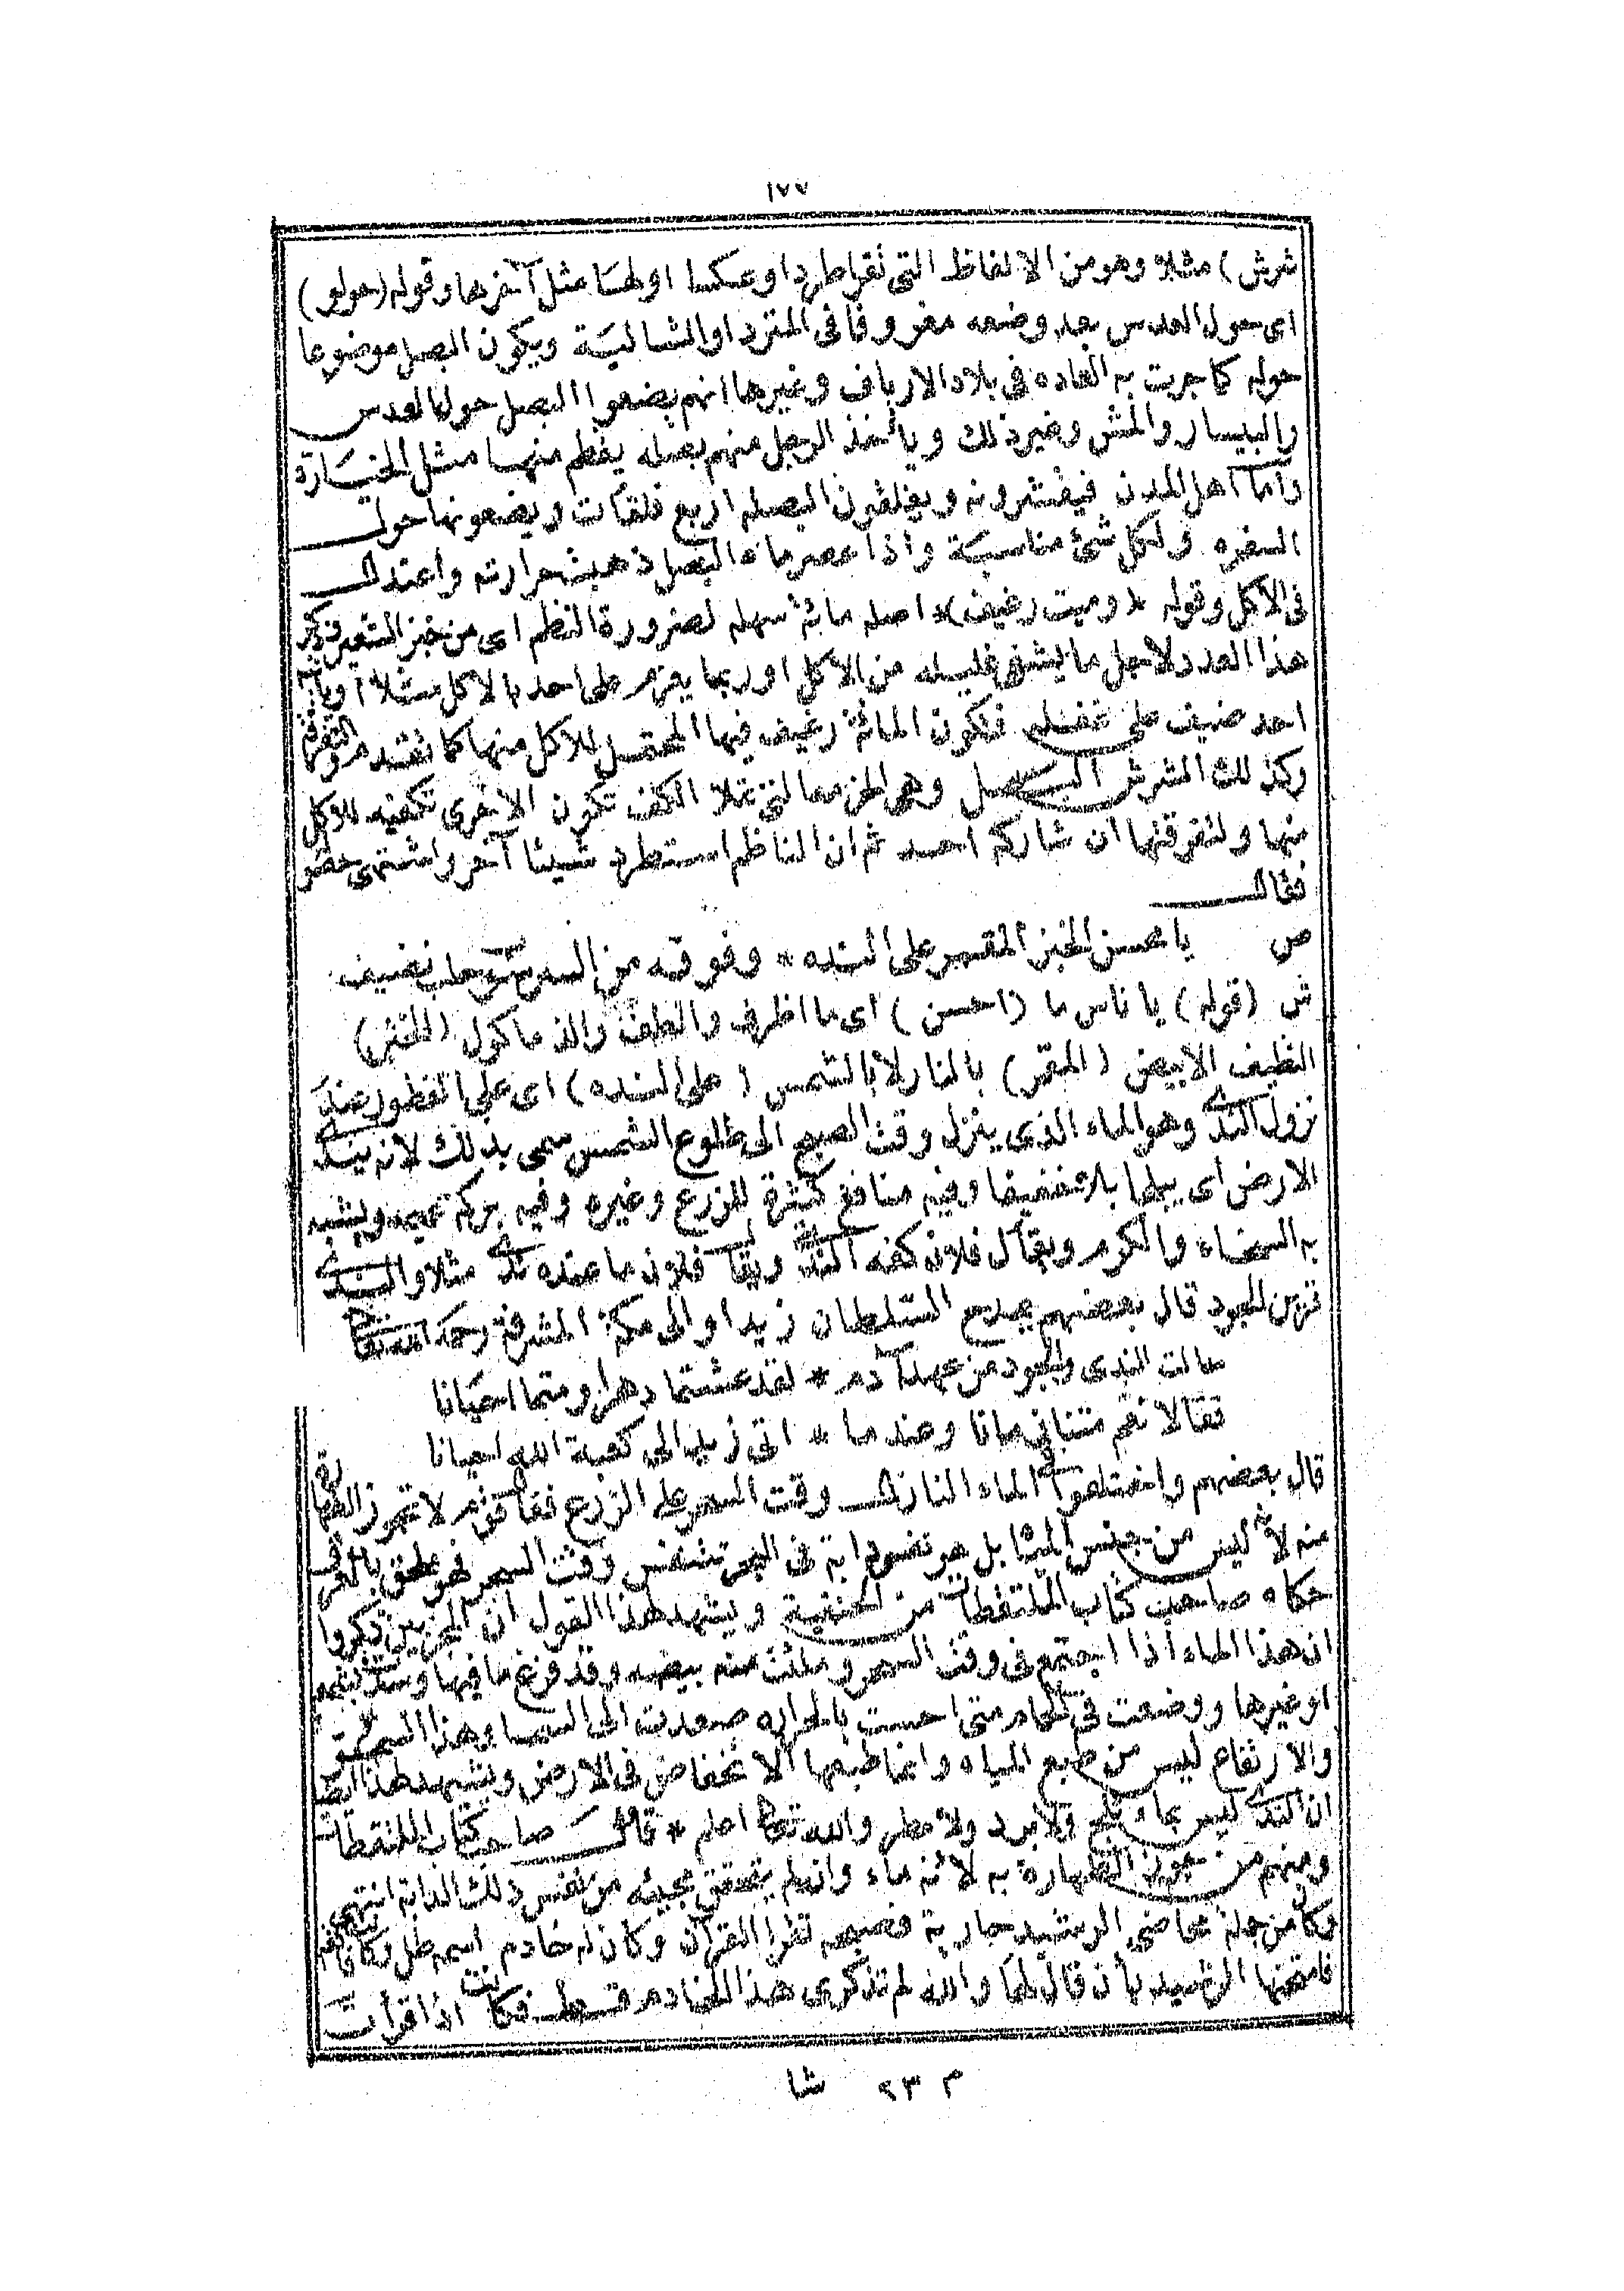 ١٧٧
شرش) مثلا وهو من الالفاظ التى تقرا طردا وعكسا اولها مثل آخرها وقوله (حولو)
اى حول العدس بعد وضعه مغروفا فى المترد او الشالية ويكون البصل موضوعا
حوله كما جريت به العاده فى بلاد الارياف وغيرها انهم يضعوا البصل حول العدس
والبيسار والمش وغير ذلك وياخذ الرجل منهم بصله يقطم منها مثل الخيارة
وأما اهل المدن فيقشرونه ويفلقون البصله اربع فلقات ويضعونها حول
السفره ولكل شئ مناسبة واذا عصر ماء البصل ذهبت حرارته واعتدل
فى الاكل وقوله * وميت رغيف)* اصله مائة سهله لضرورة النظم اى من خبز الشعير وذكر
هذا العدد لاجل ما يشفى غليله من الاكل او ربما يعزم على احد بالاكل مثلا أو يأتيه
احد ضيف على غفله فتكون المائة رغيف فيها المحصل للاكل منها كما تقدم والتفرقة
وكذلك الشرش البصل وهى الحزمه التى تملا الكف تكون الاخرى تكفيه للاكل
منها ولتفرقتها ان شاركه احد ثم ان الناظم استطرد شيئا آخر واشتهى حضو
فقال
ص يا محسن الخبز المقمر على النده * وفوقه من السرسوب حلب نضيف
ش (قوله) يا ناس ما (احسن) اى ما اظرف والطف والذ ماكول (الخبز)
النظيف الابيض (المقمر) بالنار لا بالشمس (على النده) اى على الفطور عند
نزول الندى وهو الماء الذى ينزل وقت الصبح الى طلوع الشمس سمى بذلك لانه يندى
الارض اى يبلها بلا خفيفا وفيه منافع كثيرة للزرع وغيره وفيه بركة عميمه ويشبه
به السخاء والكرم ويقال فلان كفه الندى ويقال فلان ما عنده ندى مثلا والندى
قرين للجود قال بعضهم يمدح السلطان زيدا والى مكة المشرفة رحمه الله تعالى
سالت الندى والجود من عهد آدم * لقد عشتما دهرا ومتما احيانا
فقالا نعم متنا زمانا وعندما * اتى زيد الى كعبة الله احيانا
قال بعضهم واختلفوا الماء النازل وقت السحر على الزرع فقال قوم لا تجوز الطهارة
منه لانه ليس من جنس المياه بل هو نفس دابة فى البحر تتنفس وقت السحر فهو ملحق بالعرق
حكاه صاحب كتاب الملتقطات من الحنفية ويشهد لهذا القول ان المجربين ذكروا
ان هذا الماء اذا اجتمع فى وقت السحر وملئت منه بيضه وقد فرغ ما فيها وسد
او غيرها ووضعت فى الحام متى احست بالحراره صعدت الى السما وهذا السمو
والارتفاع ليس من طبع المياه وانما طبعها الانخفاض فى الارض ويشهد لهذا ايضا
ان الندى ليس بماء ثلج ولا برد ولا مطر والله تعالى اعلم * قال صاحب كتاب الملتقطات
ومنهم من جوز الطهارة به لانه ماء وان لم يتحقق مجيئه من نفس ذلك الدابه انتهى
وكان من جملة محاضى الرشيد جارية فصيحه تقرا القرآن وكان له خادم اسمه طل وكان
فامتحنها الرشيد بأن قال لها والله لم تذكرى هذا الخادم قط فكانت اذا قرأت
م ٢٣ شا